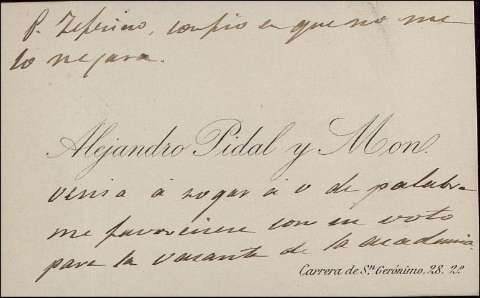 P. Zeferino, confio en que no me
lo negara.
Alejandro Pidal y Mon.
venia á rogar á v de palabra
me favoreciese con su voto
para la vacante de la academia.
Carrera de Sn. Gerónimo, 28. 2º